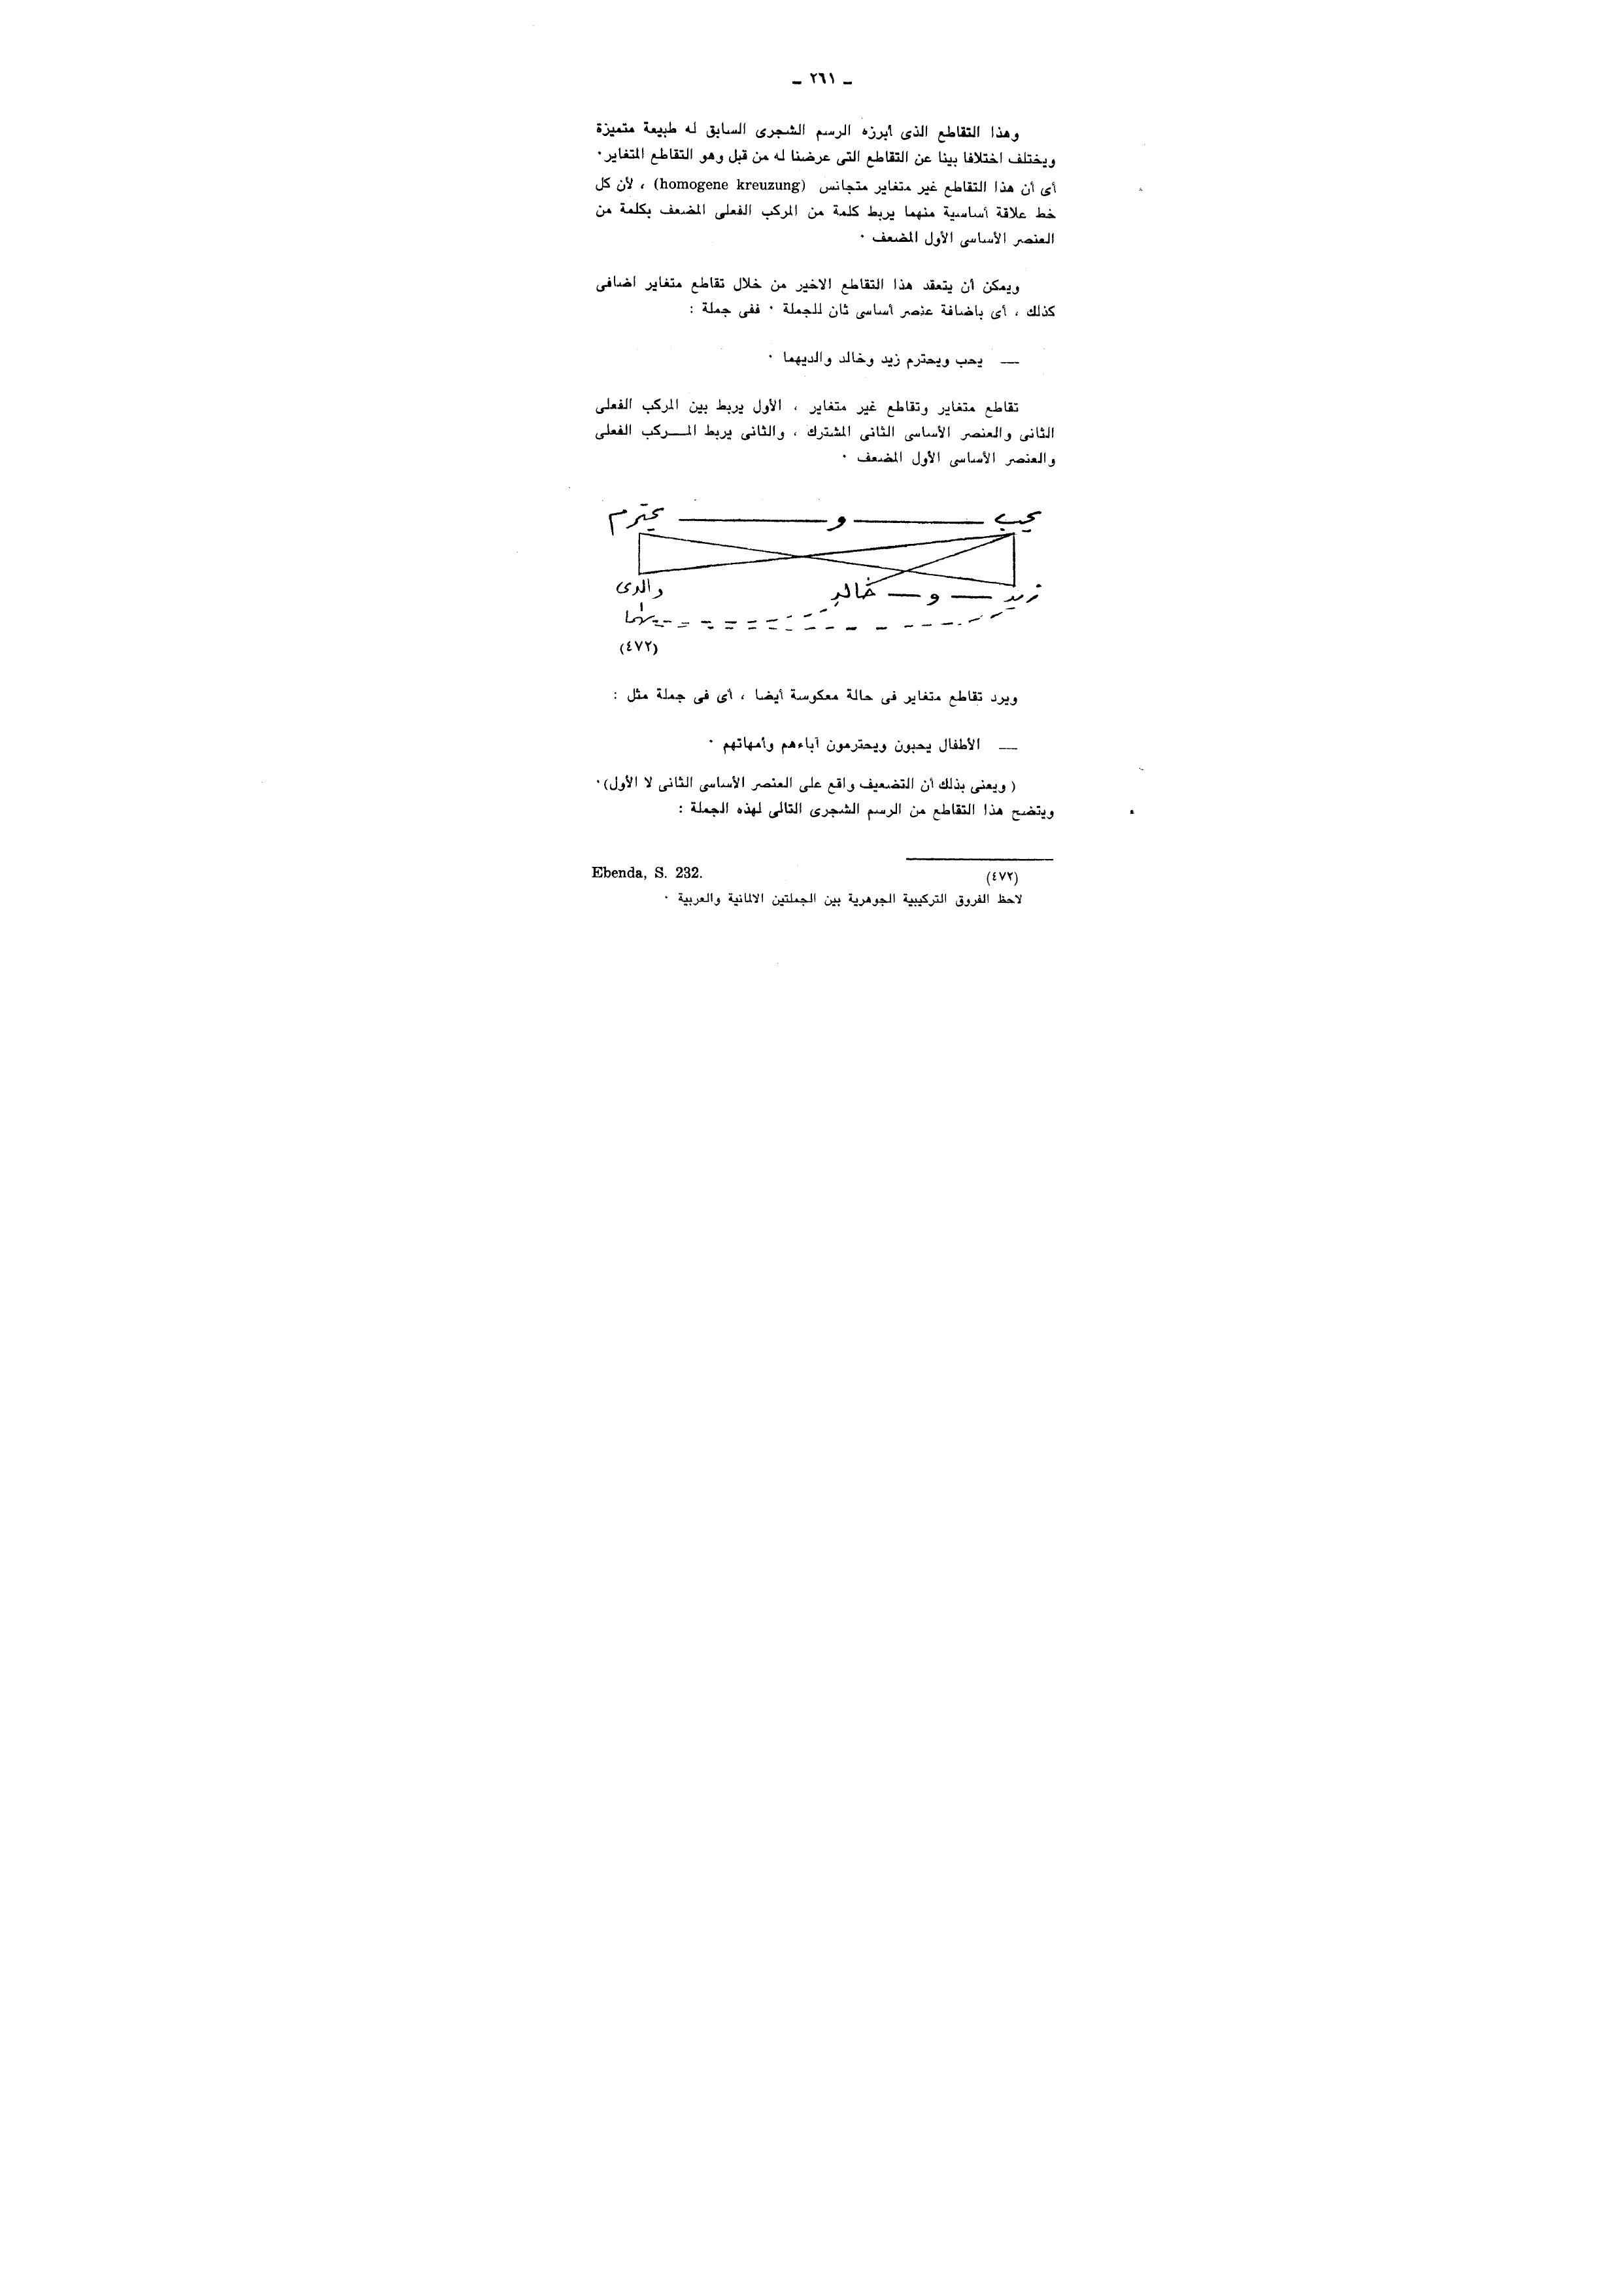 ـ ٢٦١ ـ
وهذا التقاطع الذى أبرزه الرسم الشجرى السابق له طبيعة متميزة
ويختلف اختلافا بينا عن التقاطع التى عرضنا له من قبل وهو التقاطع المتغاير ٠
أى أن هذا التقاطع غير متغاير متجانس (homogene kreuzung) ، لأن كل
خط علاقة أساسية منهما يربط كلمة من المركب الفعلى المضعف بكلمة من
العنصر الأساسى الأول المضعف ٠
ويمكن أن يتعقد هذا التقاطع الاخير من خلال تقاطع متغاير اضافى
كذلك ، أى باضافة عنصر أساسى ثان للجملة ٠ ففى جملة :
ـــ يحب ويحترم زيد وخالد والديهما ٠
تقاطع متغاير وتقاطع غير متغاير ، الأول يربط بين المركب الفعلى
الثانى والعنصر الأساسى الثانى المشترك ، والثانى يربط المـــركب الفعلى
والعنصر الأساسى الأول المضعف ٠
يحب ــــ و ــــ يحترم
زيد ـــ و ـــ خالد والدى
يهما
(٤٧٢)
ويرد تقاطع متغاير فى حالة معكوسة أيضا ، أى فى جملة مثل :
ـــ الأطفال يحبون ويحترمون آباءهم وأمهاتهم ٠
( ويعنى بذلك أن التضعيف واقع على العنصر الأساسى الثانى لا الأول) ٠
ويتضح هذا التقاطع من الرسم الشجرى التالى لهذه الجملة :
(٤٧٢) Ebenda, S. 232.
لاحظ الفروق التركيبية الجوهرية بين الجملتين الالمانية والعربية ٠